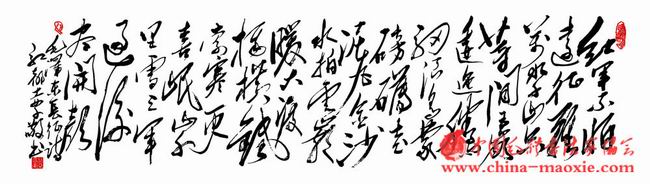 红军不怕
远征难
万水千山只
等闲五岭
逶迤腾
细浪乌蒙
磅礴走
泥丸金沙
水拍云崖
暖大渡
桥横铁
索寒更
喜岷山千
里雪三军
过后
尽开颜
www.china-maoxie.com